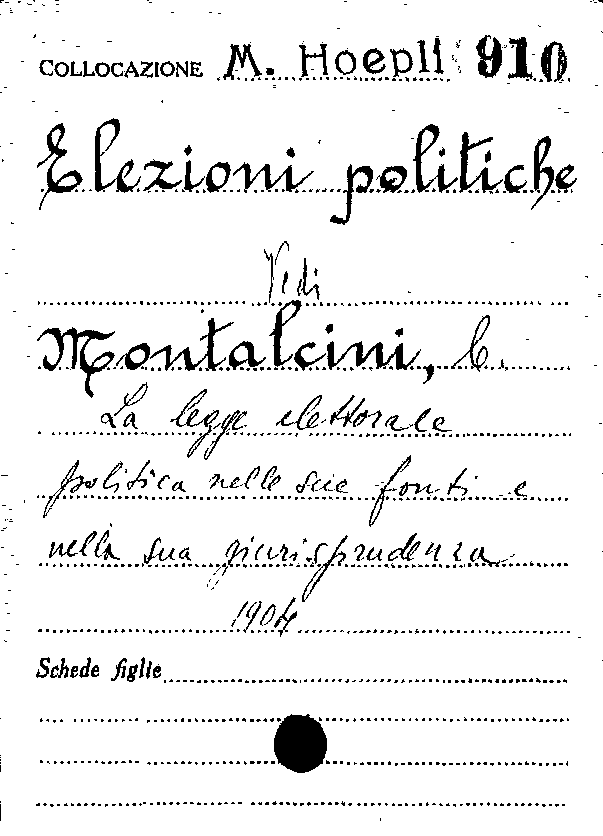 COLLOCAZIONE M. Hoepli 910
Elezioni politiche
Vedi
Montalcini, C.
La legge elettorale
politica nelle sue fonti e
nella sua giurisprudenza
1904
Schede figlie